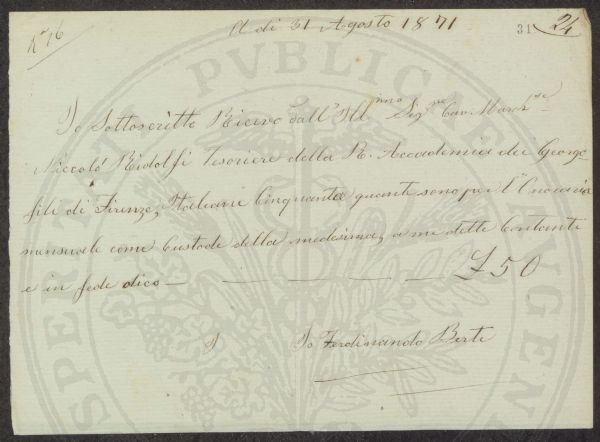 N° 16
A dì 31 Agosto 1871
31 24
Io Sottoscritto Ricevo dall' Ill.mo Sig.re Cav. March.se
Niccoló Ridolfi Tesoriere della R. Accademia dei Georgo-
fili di Firenze, Italiane Cinquanta quante sono per l'Onorario
mensuale come Custode della medesima, a me dette Contanti
e in fede dico — £ 50
Io Ferdinando Berti
PUBLICAE
PROSPERITATI
AUGENDAE